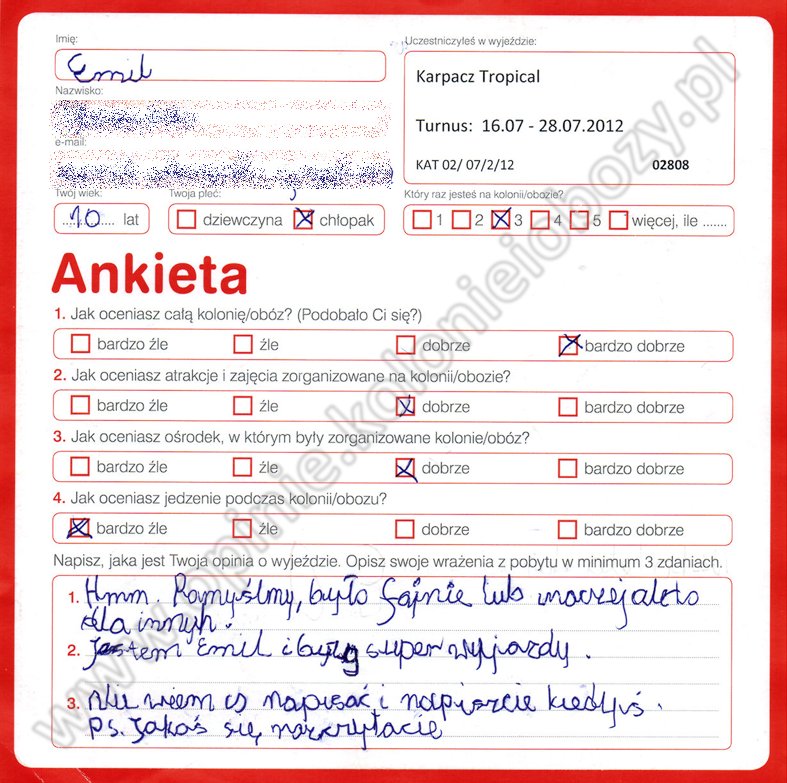 Imię:
Emil
Uczestniczyłeś w wyjeździe:
Karpacz Tropical
Turnus: 16.07 - 28.07.2012
KAT 02/ 07/2/12 02808
Nazwisko:
e-mail:
Twój wiek:
10 lat
Twoja płeć:
dziewczyna chłopak
Który raz jesteś na kolonii/obozie?
1 2 3 4 5 więcej, ile .......
Ankieta
1. Jak oceniasz całą kolonię/obóz? (Podobało Ci się?)
bardzo źle źle dobrze bardzo dobrze
2. Jak oceniasz atrakcje i zajęcia zorganizowane na kolonii/obozie?
bardzo źle źle dobrze bardzo dobrze
3. Jak oceniasz ośrodek, w którym były zorganizowane kolonie/obóz?
bardzo źle źle dobrze bardzo dobrze
4. Jak oceniasz jedzenie podczas kolonii/obozu?
bardzo źle źle dobrze bardzo dobrze
Napisz, jaka jest Twoja opinia o wyjeździe. Opisz swoje wrażenia z pobytu w minimum 3 zdaniach.
1. Hmm. Pomyślmy, było fajnie lub inaczej ale to
dla innych.
2. Jestem Emil i były super wyjazdy.
3. nie wiem co napisać i napiszcie kiedyś.
Ps. Jakoś się
www.opinie.kolonieiobozy.pl